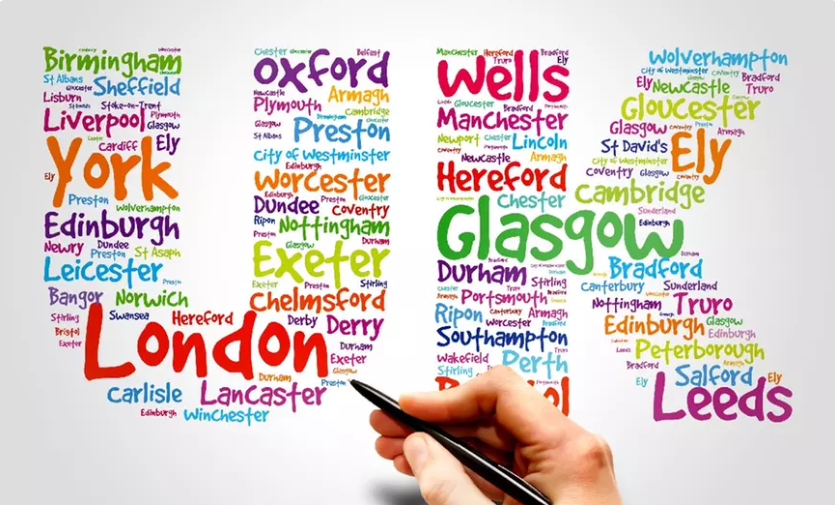 Birmingham
St Albans
Sheffield
Lisburn
Stoke-on-Trent
Liverpool
Plymouth
Glasgow
Cardiff
Ely
York
Ely
Preston
Wolverhampton
Edinburgh
Newry
Dundee
Preston
St Asaph
Leicester
Bangor
Norwich
Stirling
Swansea
Bristol
Exeter
Hereford
London
Carlisle
Lancaster
Edinburgh
Winchester
Chester
Belfast
Oxford
Newcastle
Plymouth
Armagh
Cambridge
Glasgow
St Albans
Preston
City of Westminster
Edinburgh
Worcester
Preston
Dundee
Coventry
Ripon
Nottingham
Preston
Glasgow
Durham
Exeter
Exeter
Preston
Stirling
Chelmsford
Derby
Derry
Durham
Exeter
Glasgow
Durham
Preston
Manchester
Hereford
Bradford
Truro
Ely
Wells
Gloucester
Bradford
Manchester
Newport
Chester
Lincoln
Newcastle
Armagh
Hereford
Chester
Glasgow
Durham
Stirling
Truro
Portsmouth
Ripon
Canterbury
Armagh
Worcester
Bradford
Southampton
Wakefield
Stirling
Perth
Wolverhampton
City of Westminster
Coventry
Bradford
Ely
Newcastle
Truro
Gloucester
Glasgow
Coventry
Preston
Armagh
St David's
Ely
City of Westminster
Coventry
Glasgow
Coventry
Cambridge
Sunderland
Edinburgh
Durham
Bradford
Canterbury
Sunderland
Nottingham
Truro
Edinburgh
Glasgow
Edinburgh
Leeds
Peterborough
Bradford
Ely
Salford
Ely
Leeds